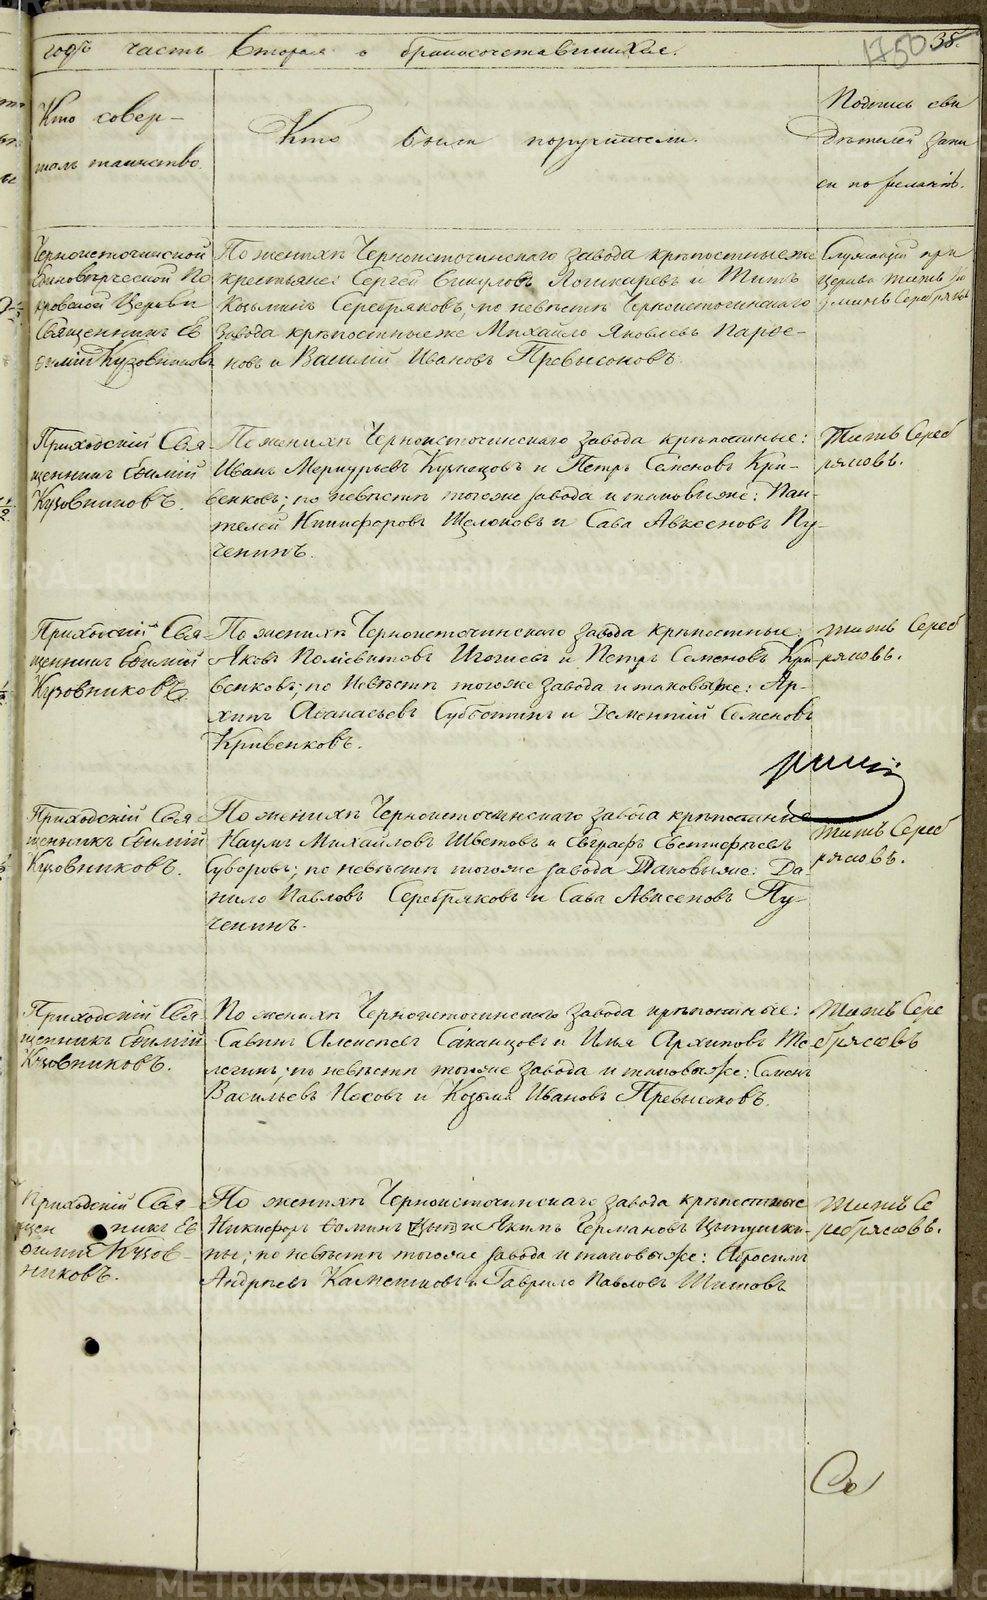 годъ часть вторая о бракосочетавшихся.
1750 38.
Кто совер-
шалъ таинство.
Кто были поручители.
Подпись сви
дѣтелей запи
си по желанію.
Черноисточинской
Единовѣрческой По
кровской Церкви
Священникъ Ев
фимій Кузовниковъ
По женихѣ Черноисточинскаго завода крѣпостные же
крестьяне: Сергей Викуловъ и Титъ
Козьминъ Серебряковъ; по невѣстѣ Черноисточинскаго
завода крѣпостные же Михайло Яковлевъ
и Василій Ивановъ Превысоковъ.
Служащій при
церкви Титъ Ко
зминъ Серебряковъ
Приходскій Свя
щенникъ Евфимій
Кузовниковъ.
По женихѣ Черноисточинскаго завода крѣпостные:
Иванъ Меркурьевъ Кузнецовъ и Петръ Семеновъ Кри-
венковъ; по невѣстѣ тогоже завода и таковыяже: Пан-
телей Никифоровъ Щелоковъ и Сава Авксеновъ Пу-
ченинъ.
Титъ Сереб
ряковъ.
Приходскій Свя
щенникъ Евфимій
Кузовниковъ.
По женихѣ Черноисточинскаго завода крѣпостные:
Яковъ и Петръ Семеновъ Кри
венковъ; по невѣстѣ тогоже завода и таковыяже: Ар-
хипъ Афанасьевъ Субботинъ и Дементій Семеновъ
Кривенковъ.
Титъ Сереб
ряковъ.
Приходскій Свя
щенникъ Евфимій
Кузовниковъ.
По женихѣ Черноисточинскаго завода крѣпостные
Наумъ Михайловъ Шветовъ и Евграфъ
Суворовъ; по невѣстѣ тогоже завода таковыяже: Да-
нило Павловъ Серебряковъ и Сава Авксеновъ Пу-
ченинъ.
Титъ Сереб
ряковъ.
Приходскій Свя
щенникъ Евфимій
Кузовниковъ.
По женихѣ Черноисточинскаго завода крѣпостные:
Савинъ Алексеевъ и Илья Архиповъ Те
легинъ; по невѣстѣ тогоже завода и таковыяже: Семенъ
Васильевъ Носовъ и Козьма Ивановъ Превысоковъ.
Титъ Сере
бряковъ
Приходскій Свя
щенникъ Ев
фимій Кузов-
никовъ.
По женихѣ Черноисточинскаго завода крѣпостные
Никифоръ Фоминъ и Якимъ Германовъ Цыпушки-
ны; по невѣстѣ тогоже завода и таковыяже: Абросимъ
Андреевъ и Гаврило Павловъ Шитовъ
Титъ Се
ребряковъ.
METRIKI.GASO-URAL.RU